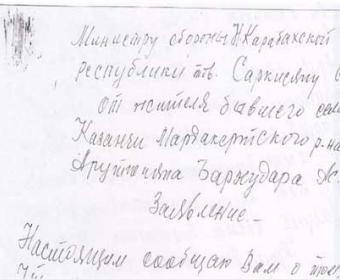 Министру обороны Н. Карабахской
республики тв. Саркисяну С
от жителя бывшего сел
Казанчи Мардакертского р-на
Арутюняна Бархудара А.
Заявление.
Настоящим сообщаю Вам о том